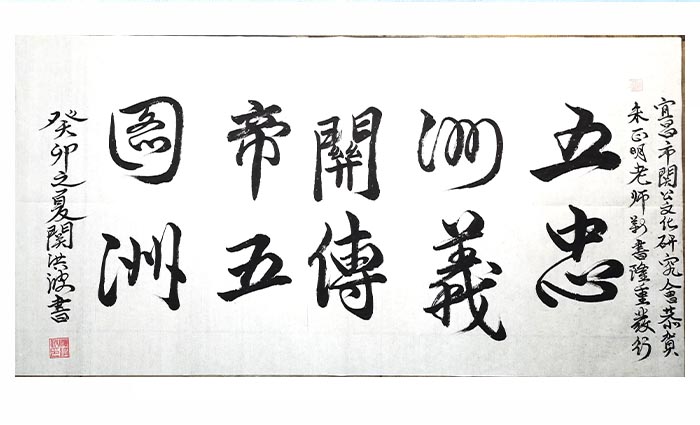 宜昌市関公文化研究會恭賀
朱正明老师新書隆重發行
五洲關帝图
忠義傳五洲
癸卯之夏関洪波書